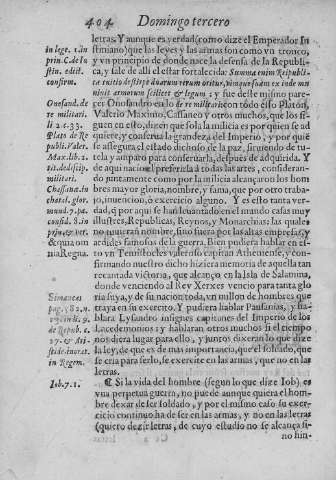 404 Domingo tercero
letras. Y aunque es verdad (como dize el Emperador Iu-
stiniano) que las leyes y las armas son como vn tronco,
y vn principio de donde nace la defensa de la Republi-
ca, y sale de alli el estar fortalecida: Summa enim Reipubli-
cæ tuitio de stirpe duarum rerum oritur,
minis armorum scilicet & legum; y fue deste mismo pare-
cer Onosandro en lo de re militari con todo esso Platon,
Valerio Maximo, Cassaneo y otros muchos, que los si-
guen en esto, dizen que sola la milicia es por quien se ad
quiere, y conserua la grandeza del Imperio, y por quié
se assegura el estado dichoso de la paz, siruiendo de tu-
tela y amparo para conseruarla, despues de adquirida. Y
de aqui nacio el preferirla à todas las artes, consideran-
do justamente como por la milicia alcançaron los hom
bres mayor gloria, nombre, y fama, que por otro traba-
jo, inuencion, ò exercicio alguno. Y es esto tanta ver-
dad, q̃ por aqui se han leuantado en el mundo casas muy
illustres, Republicas, Reynos, y Monarchias: las quales
no tuuieran nombre, sino fuera por las altas empresas, y
acciones famosas de la guerra. Bien pudiera hablar en es-
to vn Temistocles valeroso capitan Atheniense, y con-
firmando nuestro dicho hiziera memoria de aquella tan
recantada victoria, que alcançò en la Isla de Salamina,
donde venciendo al Rey Xerxes vencio para tanta glo
ria suya, y de su nacion toda, vn millon de hombres que
traya en su exercito. Y pudiera hablar Pausanias, y ha-
blara Lysandro insignes capitanes del Imperio de los
Lacedemonios; y hablaran otros muchos si el tiempo
nos diera lugar para ello, y juntos dixeran lo que dize
la ley, de que es de mas importancia, que el soldado, que
se cria para serlo, se exercite en las armas, que no en las
letras.
¶ Si la vida del hombre (segun lo que dize Iob) es
vna perpetua guerra, no puede aunque quiera el hom-
bre dexar de ser soldado, y por el mismo caso su exer-
cicio continuo ha de ser en las armas, y no en las letras
(quiero dezir letras, de cuyo estudio no se alcança si-
no hin-
in lege. 1. in
prin. C. de Iu
stin. codic.
confirm.
Onosand. de
re militari.
li 2. c. 33.
Plato de Re
publi. Valer.
Max. lib. 2.
tit. de discip.
militari.
Chassana. in
cathal. glor.
mund. 9. pa.
consid.
prin. & ver.
& quia om
nia Regna.
Simancas
pag. 582. n.
de Repub. c.
27. & Ari
in Regim.
Iob. 7. 1.